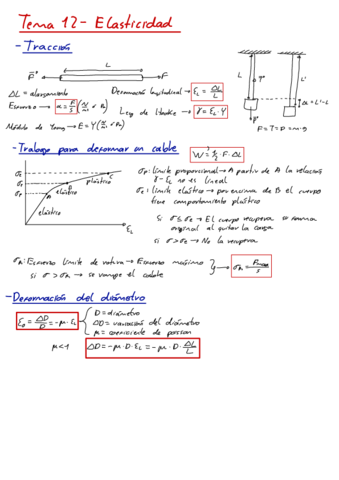 Tema 12 - Elasticidad
- Tracción
L
F
F
ΔL = alargamiento
Deformación longitudinal → ε_L = ΔL/L
Esfuerzo → σ = F/S (N/m² o Pa)
Ley de Hooke → σ = ε_L · Y
Módulo de Young → E = Y (N/m² o Pa)
L
L'
ΔL = L' - L
F = T = P = m·g
- Trabajo para deformar un cable
W = 1/2 F · ΔL
σ_P: límite proporcional → A partir de A la relación
σ - ε_L no es lineal
σ_E: límite elástico → por encima de B el cuerpo
tiene comportamiento plástico
si σ ≤ σ_E → El cuerpo recupera su forma
original al quitar la carga
si σ > σ_E → No la recupera
σ_R
σ_E
σ_P
A
B
C
elástico
plástico
ε_L
σ_R: Esfuerzo límite de rotura → Esfuerzo máximo
si σ > σ_R → se rompe el cable
σ_R = F_max/S
- Deformación del diámetro
ε_D = ΔD/D = -μ · ε_L
D = diámetro
ΔD = variación del diámetro
μ = coeficiente de poisson
μ < 1
ΔD = -μ · D · ε_L = -μ · D · ΔL/L